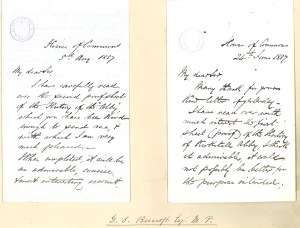 House of Commons
5th Aug. 1887
My dear Sir,
I have carefully read
over the second proof sheet
of the History of the Abbey
which you have been kind
enough to send me, &
with which I am very
much pleased.
When completed, it will be
an admirable, concise
& most interesting account
House of Commons
24th June 1887
My dear Sir,
Many thanks for your
kind letter of yesterday.
I have read over with
much interest the first
sheet (proof) of the History
of Kirkstall Abby, & think
it admirable, it could
not possibly be better for
the purpose intended.
Esq. M. P.